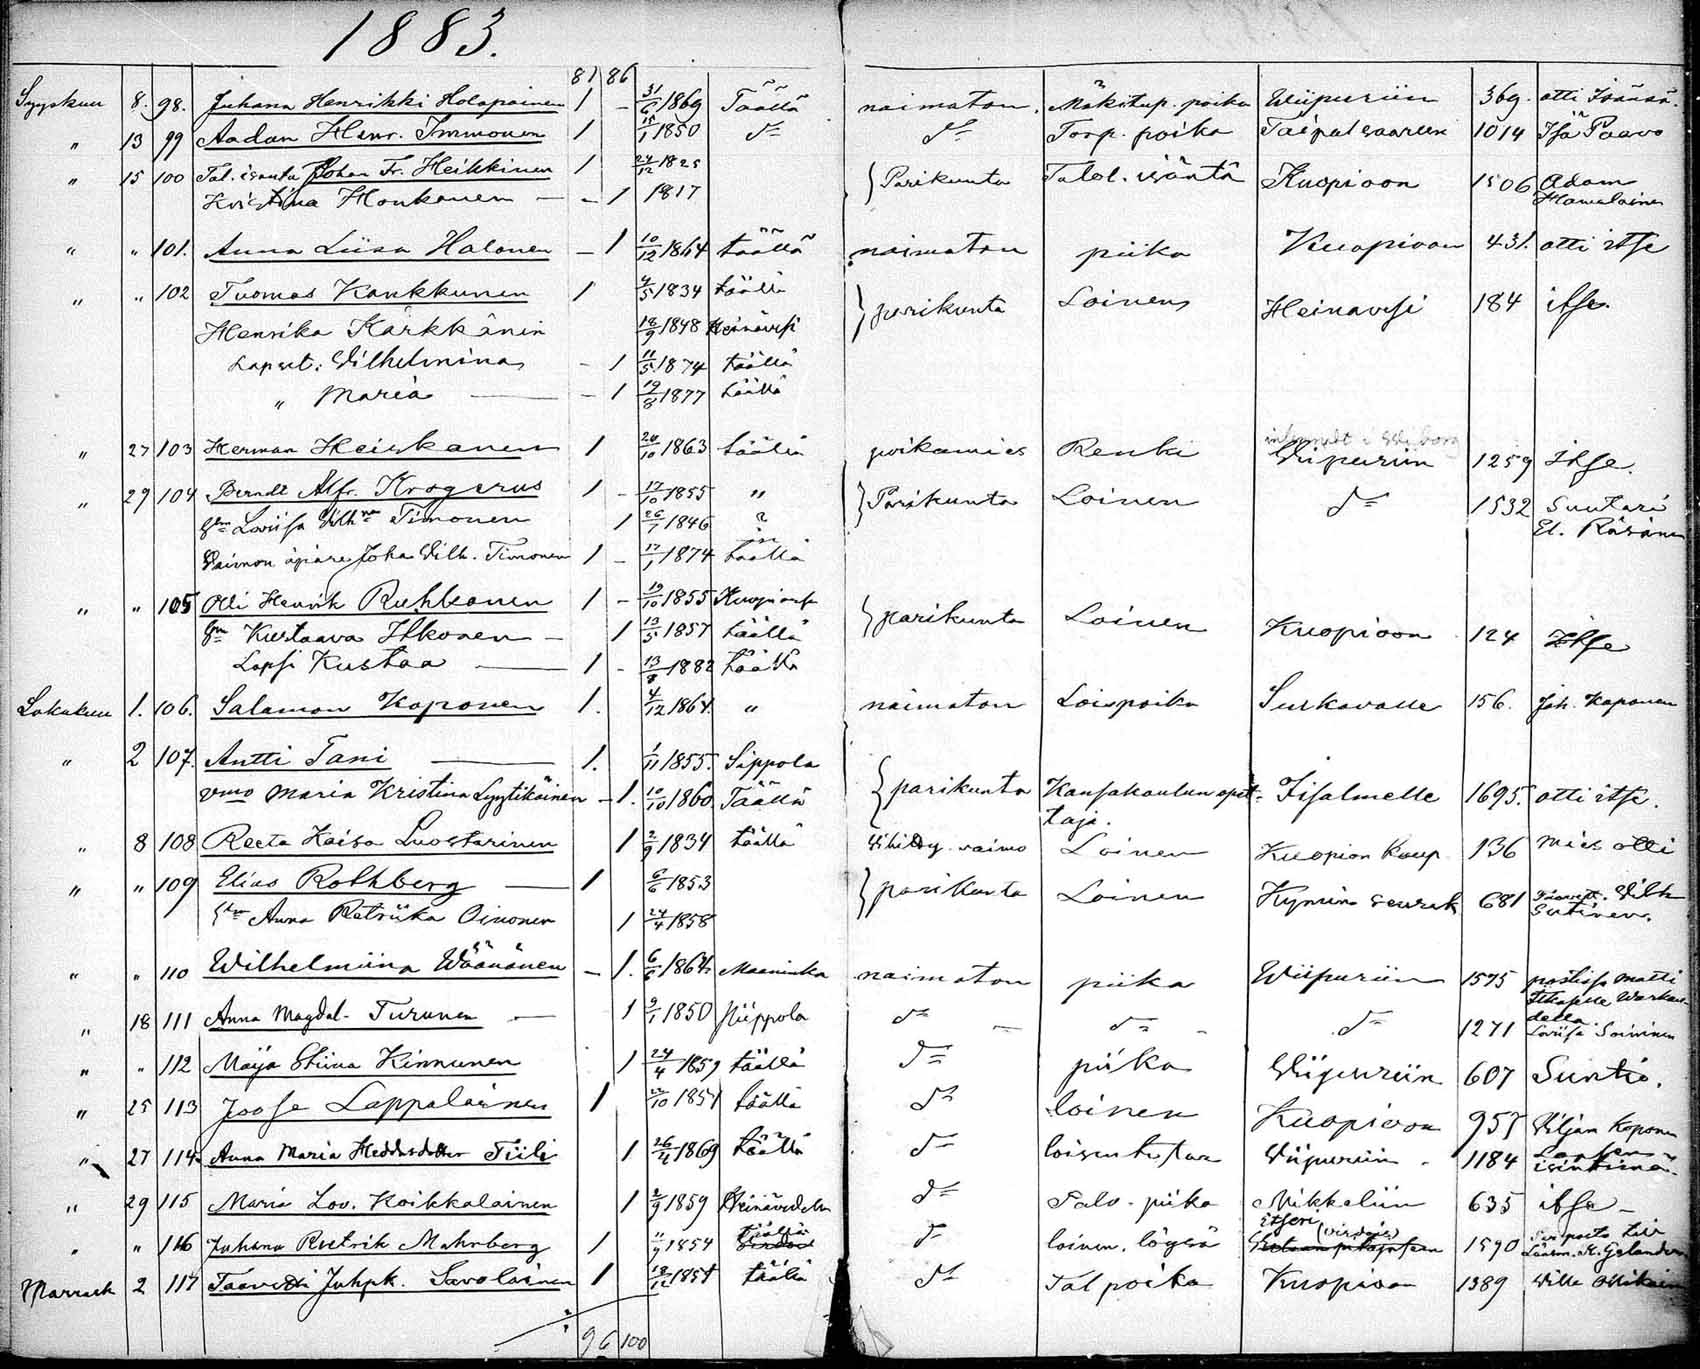 1883.
81 86
Syyskuu 8. 98. Juhana Henrikki Holopainen 1 - 31/6 1869 Täällä naimaton. Mäkitup. poika Wiipuriin 369. otti Isänsä.
" 13 99 Aadam Henr. Immonen 1 15/1 1850 d:o d:o Torp. poika Taipalsaareen 1014 Isä Paavo
" 15 100 Tal. isäntä Johan Fr. Heikkinen 1 24/12 1825 } Parikunta Talol. isäntä Kuopioon 1506 Adam
Kristiina Honkanen - 1 1817 Hämäläinen
" " 101. Anna Liisa Halonen - 1 10/12 1864 täällä naimaton piika Kuopioon 431. otti itse
" " 102 Tuomas Kankkunen 1 4/5 1834 täällä } parikunta Loinen Heinävesi 184 itse.
Henrika Kärkkänin 18/9 1848 Heinävesi
Lapset: Wilhelmina - 1 11/5 1874 täällä
" Maria - 1 19/8 1877 täällä
" 27 103 Herman Heiskanen 1 20/10 1863 täällä poikamies Renki Wipuriin 1259 itse.
" 29 104 Berndt Alfr. Krogerus 1 - 17/10 1855 " } Parikunta Loinen d:o 1532 Suutari
Lovisa Wilh:na Timonen 1 26/7 1846 ? El. Räsänen
Vaimon äpärä Joha Wilh. Timonen 1 - 17/1 1874 täällä
" " 105 Olli Henrik Ruhkanen 1 - 19/10 1855 } parikunta Loinen Kuopioon 124 itse
Kustaava Itkonen - 1 13/5 1857 täällä
Lapsi Kustaa 1 - 13/8 1882 täällä
Lokakuu 1. 106. Salamon Koponen 1. 4/12 1864. " naimaton Loispoika Suskavalle 156. Joh. Koponen
" 2 107. Antti Tani 1. 1/11 1855. Sippola { parikunta Kansakoulun opet- Iisalmelle 1695. otti itse.
vmo Maria Kristina Lyytikäinen - 1. 10/10 1860 Täällä taja.
" 8 108 Reeta Kaisa Luostarinen 1 2/9 1834 täällä Wihitty vaimo Loinen Kuopion kaup. 136 mies otti
" " 109 Elias Rothberg 1 6/6 1853 } parikunta Loinen Kymin seurak 681 Wilh
Anna Retriika Oinonen 1 24/4 1858 Sutinen.
" " 110 Wilhelmiina Wäänänen - 1. 6/6 1864 Maaninka naimaton piika Wiipuriin 1575 postissa Matti
" 18 111 Anna Magdal. Turunen - 1 9/1 1850 Piippola d:o d:o d:o 1271 Lovisa Soininen
" " 112 Maija Stiina Kinnunen 1 24/4 1859 täällä d:o piika Wiipuriin 607 Suntio.
" 25 113 Joose Lappalainen 1 täällä d:o loinen Kuopioon 957 Viljam Koponen
" 27 114. Anna Maria Tiili 1 26/4 1869 täällä d:o Wiipuriin. 1184
" 29 115 Maria Lov. Koikkalainen 1 2/9 1859 d:o Talo-piika Mikkeliin 635 itse -
" " 116 Juhana Retrik Mahrberg 1 11/9 1854 täällä d:o loinen. 1590
Marrask 2 117 Taavetti Juhpk. Savolainen 1 täällä d:o Tal poika Kuopioon 1389 Wille
96 100